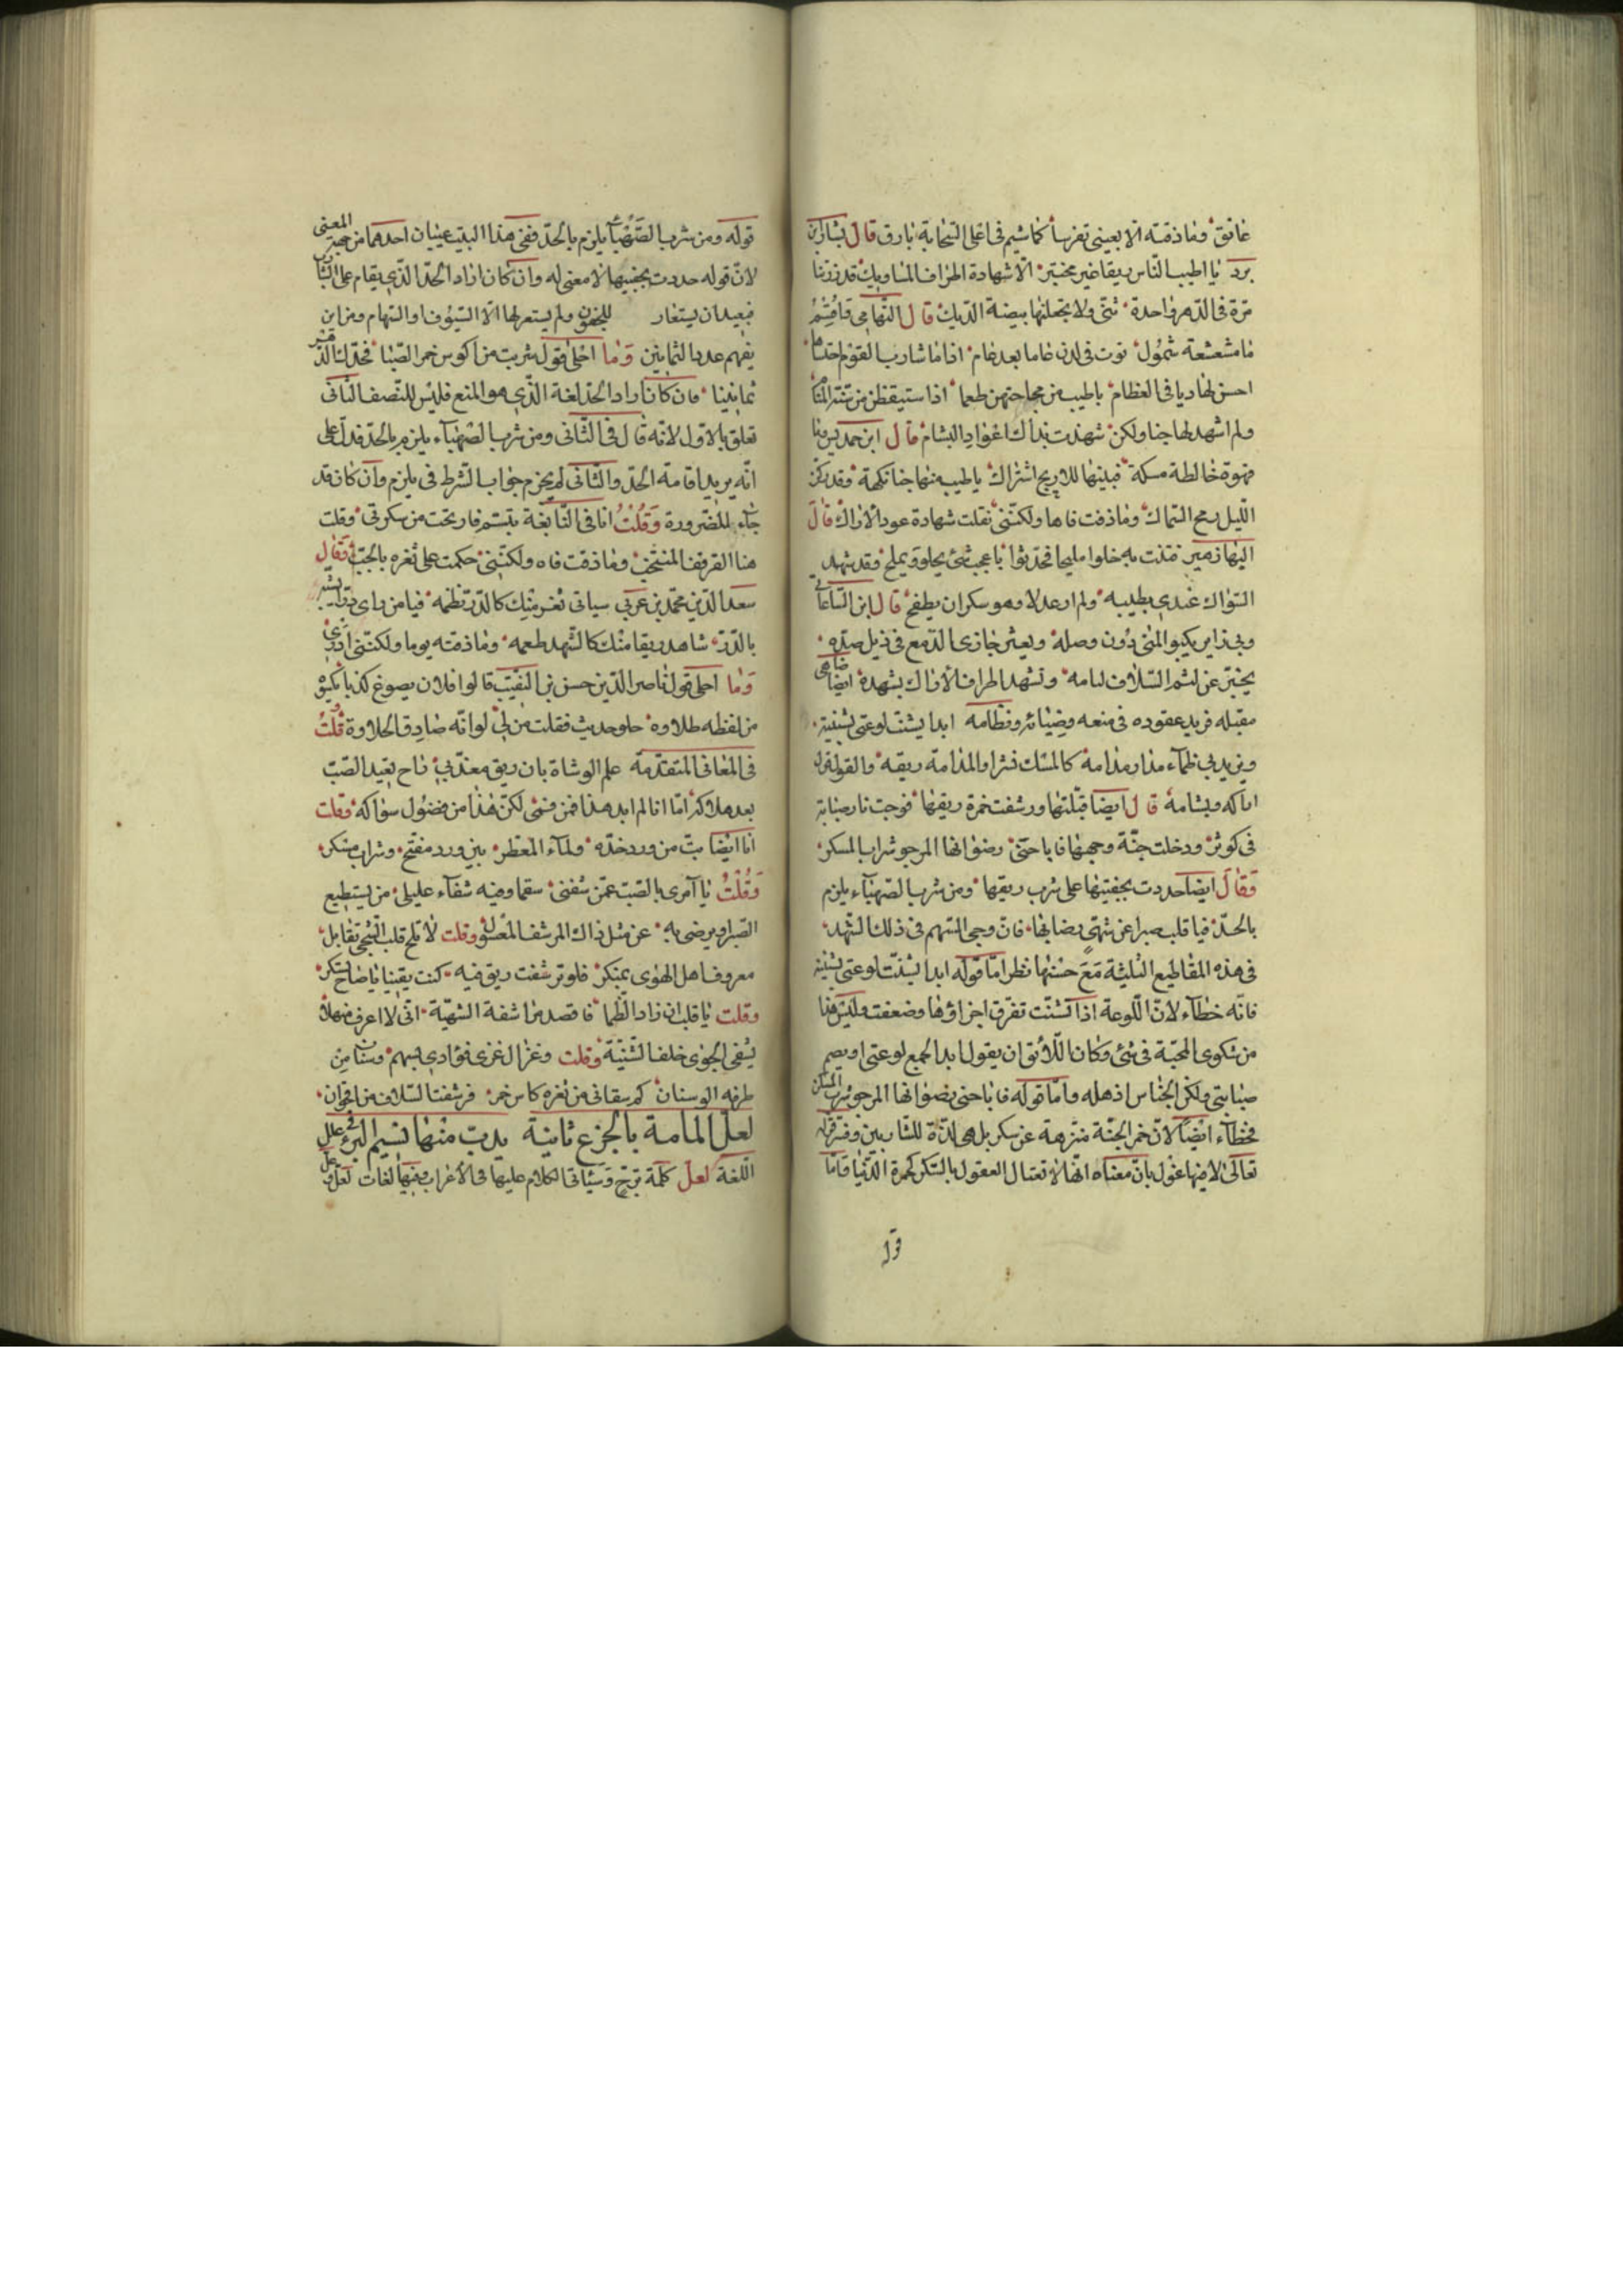 غانق وما ذقته الا بعيني تفرسا كما شيم في اعلى السحابة بارق قال بشار بن
برد يا اطيب الناس ريقا غير مختبر الا شهادة اطراف المساويك قد زرتنا
مرة في الدهر واحدة ثني ولا تجعلنها بيضة الديك قال التهامي
ما مشعشعة شمول ثوت في الدن عاما بعد عام اذا ما شارب القوم احتساها
احس لها دبيبا في العظام باطيب من مجاجتهن طعما اذا استيقظن من سنة المنام
ولم اشهد لها جنا ولكن شهدت بذاك اعواد البشام قال ابن حمديس وما
قهوة خالطة مسكة فبينها للاريج اشتراك باطيب منها جنا نكهة وقد ركز
الليل رمح السماك وما ذقت فاها ولكنني نقلت شهادة عود الاراك قال
البهاء زهير فتنت به حلوا مليحا فحدثوا باعجب شئ يحلو ويملح وقد شهد
السواك عندي بطيبه ولم ار عدلا وهو سكران يطفح قال ابن الساعاتي
وبي ذابر يكبو المنى دون وصله ويعثر جازى الدمع في ذيل صده
يخبر عن لثم السلاف لثامه وتشهد اطراف الاراك بشهده ايضا
مقبله فريد عقوده في منعه وضيائه ونظامه ابدا يشتت لوعتي بشتيته
ويزيد بي ظماء مدار مدامه كالمسك نشرا والمدامة ريقه والقول قول
اراكه وبشامه قال ايضا قبلتها ورشفت خمرة ريقها فوجدت نار صبابة
في كوثر ودخلت جنة وجهها فاباحني رضوانها المرجو شراب المسكر
وقال ايضا حددت بجفنيها على شرب ريقها ومن شرب الصهباء يلزم
بالحد فيا قلب صبرا عن شهي رضابها فان وحى السهم في ذلك الشهد
في هذه المقاطيع الثلثة مع حسنها نظر اما قوله ابدا يشتت لوعتي بشتيته
فانه خطاء لان اللوعة اذا تشتت تفرق اجزاؤها وضعفت وليس هذا
من شكوى المحبة في شئ وكان اللائق ان يقول ابدا يجمع لوعتي او يصم
صبابتي ولكن الجناس اذهله واما قوله فاباحني رضوانها المرجو شرب المسكر
فخطاء ايضا لان خمر الجنة منزهة عن سكر بل هي لذة للشاربين وفسر قوله
تعالى لا فيها غول بان معناه انها لا تغتال العقول بالسكر كخمرة الدنيا فاما
قوله
قوله ومن شرب الصهباء يلزم بالحد ففي هذا البيت عيبان احدهما من جهة المعنى
لان قوله حددت بجفنيها لا معنى له وان كان اراد الحد الذي يقام على الشارب
فبعيد ان يستعار للجفون ولم يستعر لها الا السيوف والسهام ومن اين
يفهم عدد الثمانين وما احلى قول شربت من اكوس خمر الصبا فحدك الدهر
ثمانينا فان كان اراد الحد لغة الذي هو المنع فليس للنصف الثاني
تعلق بالاول لانه قال في الثاني ومن شرب الصهباء يلزم بالحد فدل على
انه يريد اقامة الحد والثاني لم يجزم جواب الشرط في يلزم وان كان قد
جاء للضرورة وقلت انا في النابغة يتبسم فارتحت من سكرتي وقلت
هنا القرقف المنتخب وما ذقت فاه ولكنني حكمت على ثغره بالحبب وقال
سعد الدين محمد بن عربي سباني ثغر منك كالدر نظمه فيا من راى
بالدر شاهد ريقا منك كالشهد طعمه وما ذقته يوما ولكنني ادرى
وما احلى قول ناصر الدين حسن بن النقيب قالوا فلان يصوغ كذبا يكسوه
من لفظه طلاوه حلو حديث فقلت من لي لو انه صادق الحلاوة قلت
في المعاني المتقدمة علم الوشاة بان ريق معذبي راح يعيد الصب
بعد هلاكه اما انا لم ابد هذا من فمي لكن هذا من فضول سواكه وقلت
انا ايضا بت من ورد خده ولماء المعطر بين ورد مفتح وشراب مسكر
وقلت يا آمرى بالصبر عمن شفني سقما وفيه شفاء عليلي من يستطيع
الصبر او يرضى به عن مثل ذاك المرشف المعسول وقلت لا تلح قلب الشجي تقابل
معروف اهل الهوى بمنكر فلو ترشفت ريق فيه كنت يقينا يا صاح تسكر
وقلت يا قلب ان زاد الظما فاقصد مراشفه الشهية اني لا اعرف منهلا
يشفى الجوى خلف الثنية وقلت وغزال غزى فؤادي بسهم وسنان من
طرفه الوسنان كم سقاني من ثغره كاس خمر فرشفت السلاف من اقحوان
لعل المامة بالجزع ثانية يدب منها نسيم البرء في علل
اللغة لعل كلمة ترج وسيئاتي الكلام عليها في الاعراب وفيها لغات لعل وعل